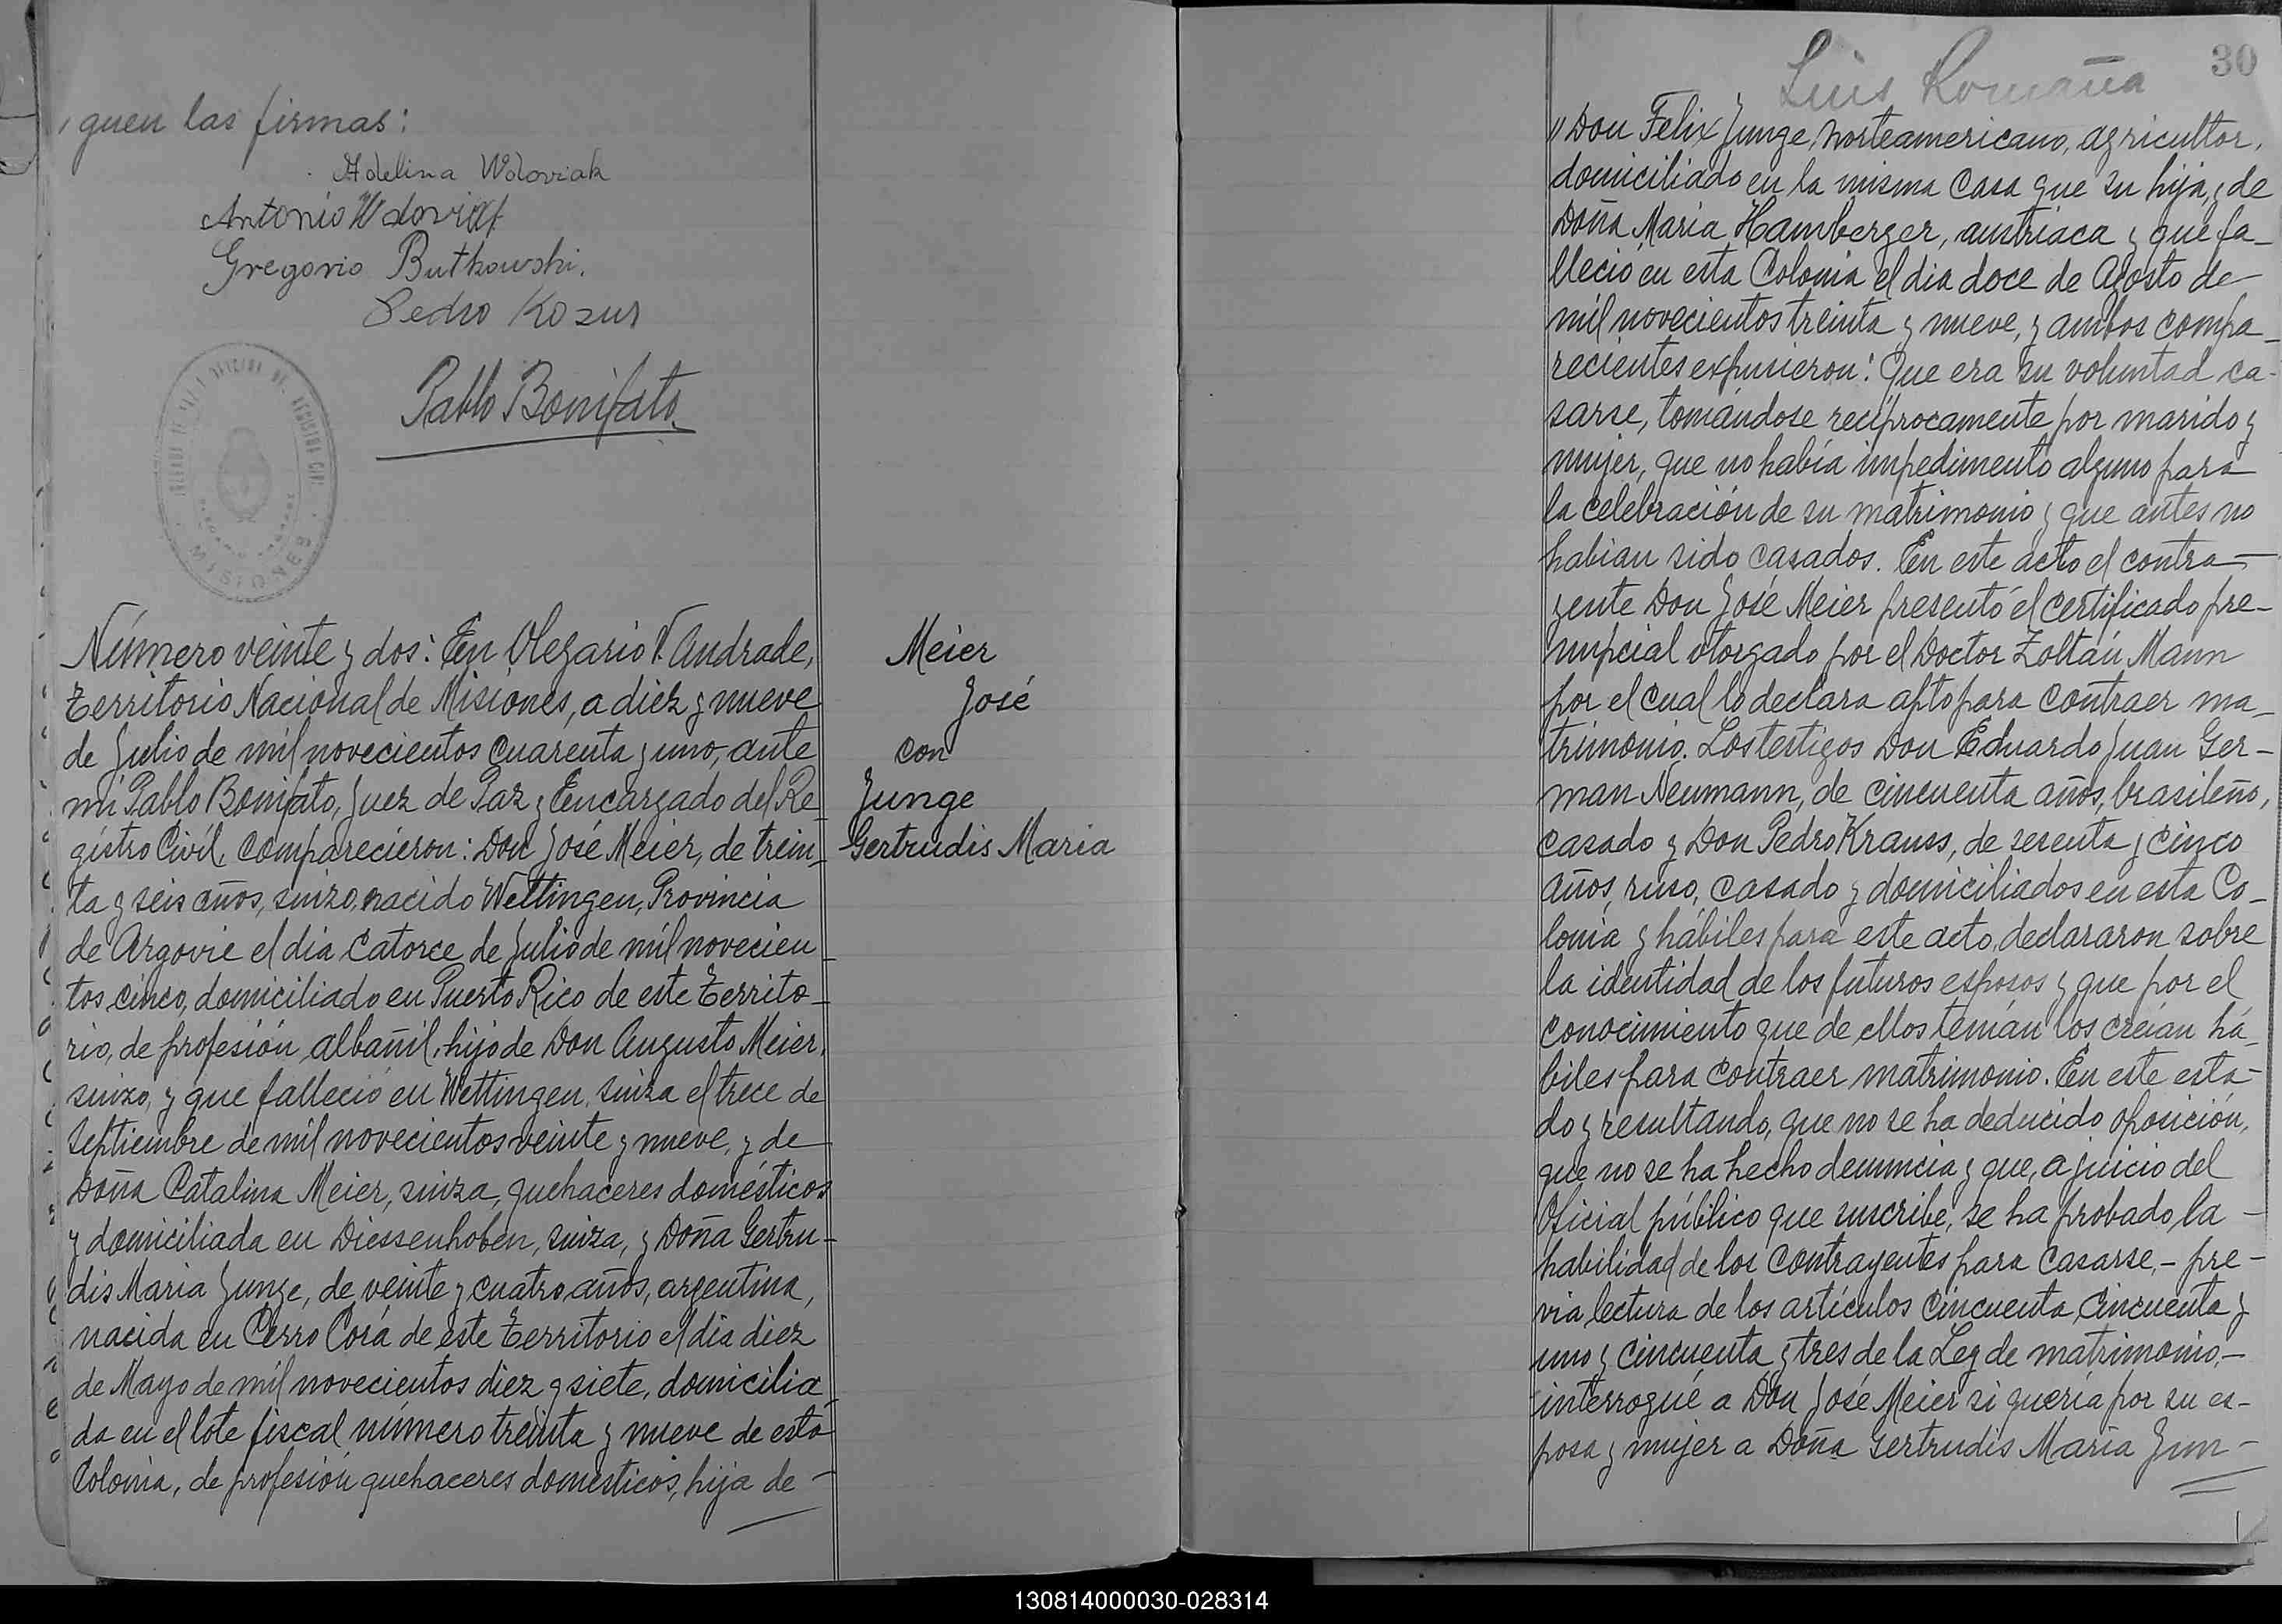 guen las firmas:
Adelina Wdoviak
Antonio Wdoviak
Gregorio Butkowski.
Pedro Kozur
Pablo Bonifato.
REGISTRO CIVIL
MISIONES
Número veinte y dos: En Olegario V. Andrade,
Territorio Nacional de Misiones, a diez y nueve
de Julio de mil novecientos cuarenta y uno, ante
mi Pablo Bonifato, Juez de Paz y Encargado del Re-
gistro Civil, comparecieron: Don José Meier, de trein-
ta y seis años, suizo, nacido Wettingen, Provincia
de Argovie el dia catorce de Julio de mil novecien-
tos cinco, domiciliado en Puerto Rico de este Territo-
rio, de profesión albañil, hijo de Don Augusto Meier,
suizo, y que falleció en Wettingen, suiza el trece de
Septiembre de mil novecientos veinte y nueve, y de
Doña Catalina Meier, suiza, quehaceres domésticos
y domiciliada en Diessenhoben, suiza, y Doña Gertru-
dis Maria Junge, de veinte y cuatro años, argentina,
nacida en Cerro Corá de este Territorio el dia diez
de Mayo de mil novecientos diez y siete, domicilia-
da en el lote fiscal número treinta y nueve de esta
Colonia, de profesión quehaceres domésticos, hija de -
Meier
José
con
Junge
Gertrudis Maria
30
Luis Romaña
" Don Felix Junge, norteamericano, agricultor,
domiciliado en la misma Casa que su hija, y de
Doña Maria Hamberger, austriaca y que fa-
lleció en esta Colonia el dia doce de Agosto de
mil novecientos treinta y nueve, y ambos compa-
recientes expusieron: Que era su voluntad ca-
sarse, tomándose recíprocamente por marido y
mujer, que no había impedimento alguno para
la celebración de su matrimonio y que antes no
habian sido casados. En este acto el contra-
yente Don José Meier presentó el certificado pre-
nupcial otorgado por el Doctor Zoltán Mann
por el cual lo declara apto para contraer ma-
trimonio. Los testigos Don Eduardo Juan Ger-
man Neumann, de cincuenta años, brasileño,
casado y Don Pedro Krauss, de sesenta y cinco
años, ruso, casado y domiciliados en esta Co-
lonia y hábiles para este acto, declararon sobre
la identidad de los futuros esposos y que por el
conocimiento que de ellos tenían los creían há-
biles para contraer matrimonio. En este esta-
do y resultando, que no se ha deducido oposición,
que no se ha hecho denuncia y que, a juicio del
Oficial público que suscribe, se ha probado la -
habilidad de los contrayentes para casarse, - pre-
via lectura de los artículos cincuenta, cincuenta y
uno y cincuenta y tres de la Ley de matrimonio, -
interrogué a Don José Meier si quería por su es-
posa y mujer a Doña Gertrudis Maria Jun-
130814000030-028314